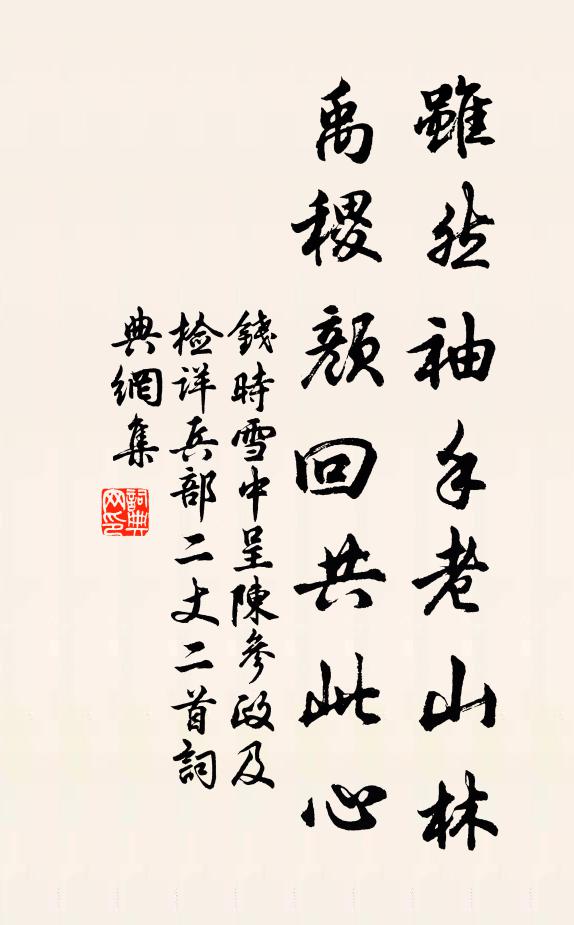 雖然袖手老山林
禹稷顏回共此心
錢時雪中呈陳參政及
檢詳兵部二丈二首詞
典網集
詞典網印